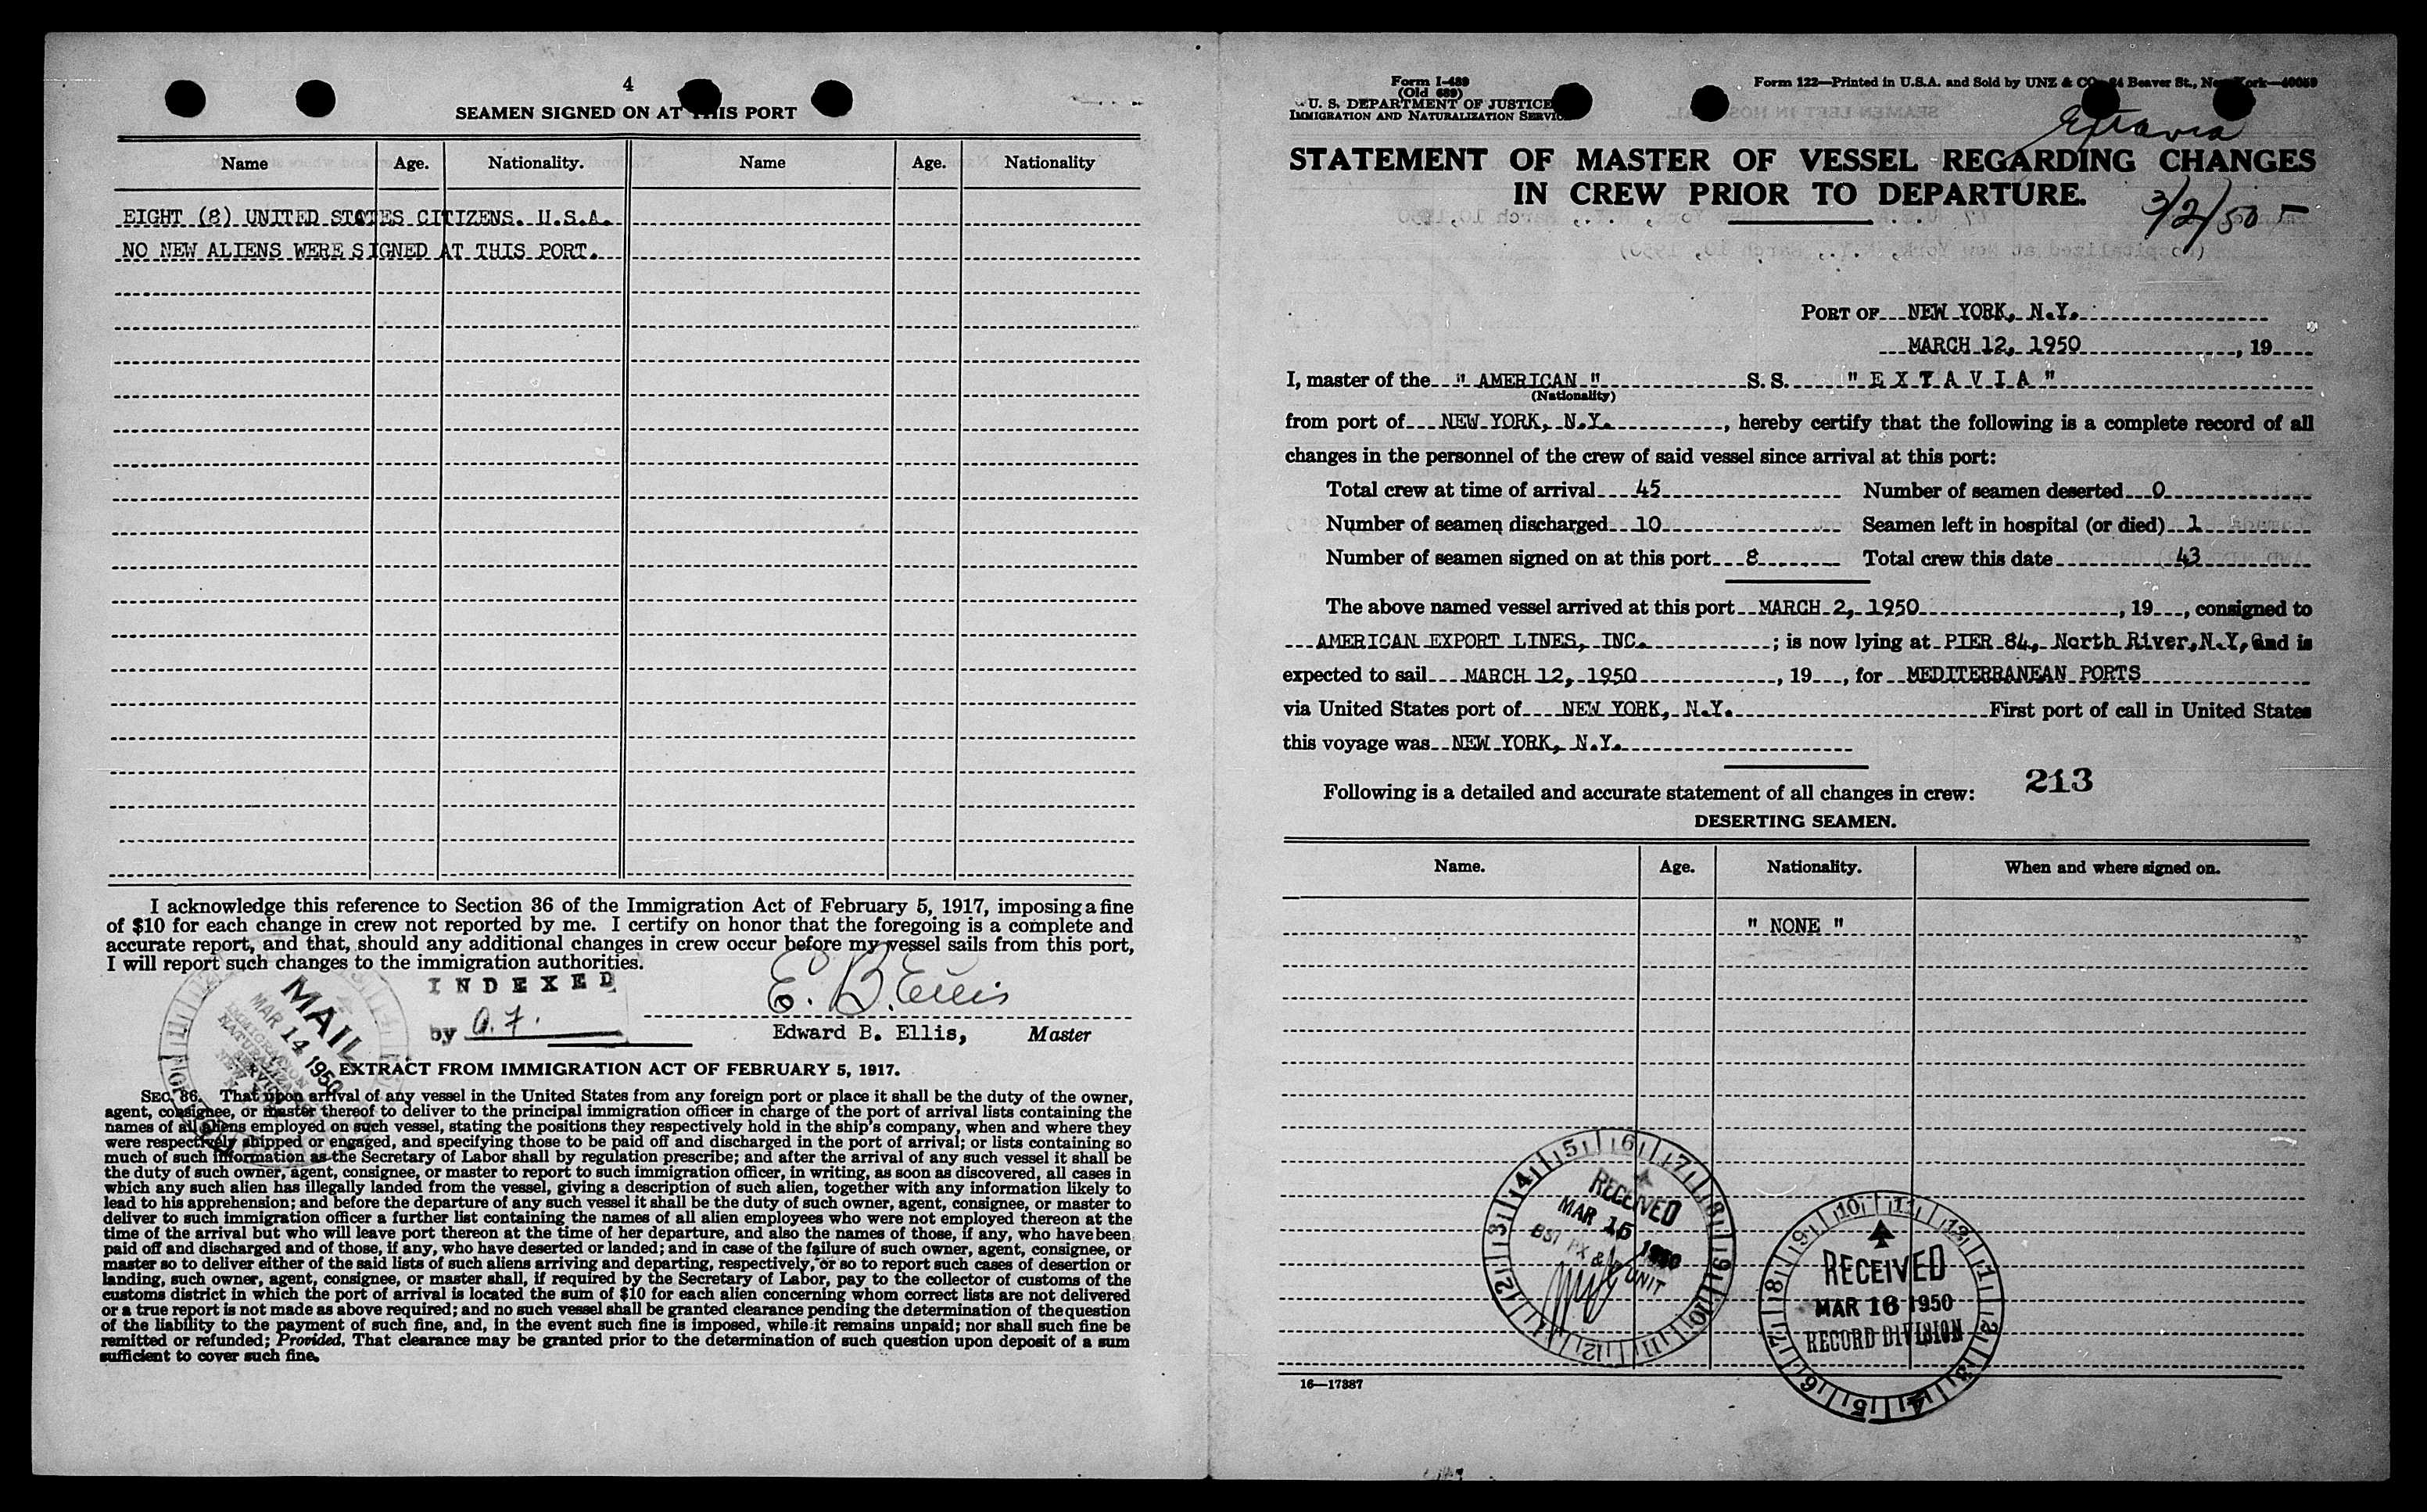 4
SEAMEN SIGNED ON AT THIS PORT
Name Age. Nationality. Name Age. Nationality
EIGHT (8) UNITED STATES CITIZENS. U.S.A.
NO NEW ALIENS WERE SIGNED AT THIS PORT.
I acknowledge this reference to Section 36 of the Immigration Act of February 5, 1917, imposing a fine
of $10 for each change in crew not reported by me. I certify on honor that the foregoing is a complete and
accurate report, and that, should any additional changes in crew occur before my vessel sails from this port,
I will report such changes to the immigration authorities.
INDEXED
by a. f.
E. B. Ellis
Edward B. Ellis, Master
MAIL
MAR 14 1950
IMMIGRATION
NATURALIZATION
SERVICE
EXTRACT FROM IMMIGRATION ACT OF FEBRUARY 5, 1917.
SEC. 36. That upon arrival of any vessel in the United States from any foreign port or place it shall be the duty of the owner,
agent, consignee, or master thereof to deliver to the principal immigration officer in charge of the port of arrival lists containing the
names of all aliens employed on such vessel, stating the positions they respectively hold in the ship's company, when and where they
were respectively shipped or engaged, and specifying those to be paid off and discharged in the port of arrival; or lists containing so
much of such information as the Secretary of Labor shall by regulation prescribe; and after the arrival of any such vessel it shall be
the duty of such owner, agent, consignee, or master to report to such immigration officer, in writing, as soon as discovered, all cases in
which any such alien has illegally landed from the vessel, giving a description of such alien, together with any information likely to
lead to his apprehension; and before the departure of any such vessel it shall be the duty of such owner, agent, consignee, or master to
deliver to such immigration officer a further list containing the names of all alien employees who were not employed thereon at the
time of the arrival but who will leave port thereon at the time of her departure, and also the names of those, if any, who have been
paid off and discharged and of those, if any, who have deserted or landed; and in case of the failure of such owner, agent, consignee, or
master so to deliver either of the said lists of such aliens arriving and departing, respectively, or so to report such cases of desertion or
landing, such owner, agent, consignee, or master shall, if required by the Secretary of Labor, pay to the collector of customs of the
customs district in which the port of arrival is located the sum of $10 for each alien concerning whom correct lists are not delivered
or a true report is not made as above required; and no such vessel shall be granted clearance pending the determination of the question
of the liability to the payment of such fine, and, in the event such fine is imposed, while it remains unpaid; nor shall such fine be
remitted or refunded; Provided, That clearance may be granted prior to the determination of such question upon deposit of a sum
sufficient to cover such fine.
Form I-489
(Old 689)
U. S. DEPARTMENT OF JUSTICE
IMMIGRATION AND NATURALIZATION SERVICE
Form 122—Printed in U.S.A. and Sold by UNZ & CO. 24 Beaver St., New York—40059
Extavia
STATEMENT OF MASTER OF VESSEL REGARDING CHANGES
IN CREW PRIOR TO DEPARTURE.
3/2/50
PORT OF NEW YORK, N.Y.
MARCH 12, 1950, 19
I, master of the " AMERICAN " S. S. " E X T A V I A "
(Nationality)
from port of NEW YORK, N.Y., hereby certify that the following is a complete record of all
changes in the personnel of the crew of said vessel since arrival at this port:
Total crew at time of arrival 45 Number of seamen deserted 0
Number of seamen discharged 10 Seamen left in hospital (or died) 1
Number of seamen signed on at this port 8 Total crew this date 43
The above named vessel arrived at this port MARCH 2, 1950, 19, consigned to
AMERICAN EXPORT LINES, INC.; is now lying at PIER 84, North River, N.Y, and is
expected to sail MARCH 12, 1950, 19, for MEDITERRANEAN PORTS
via United States port of NEW YORK, N.Y. First port of call in United States
this voyage was NEW YORK, N.Y.
213
Following is a detailed and accurate statement of all changes in crew:
DESERTING SEAMEN.
Name. Age. Nationality. When and where signed on.
" NONE "
RECEIVED
MAR 15 1950
UNIT
RECEIVED
MAR 16 1950
RECORD DIVISION
16—17387